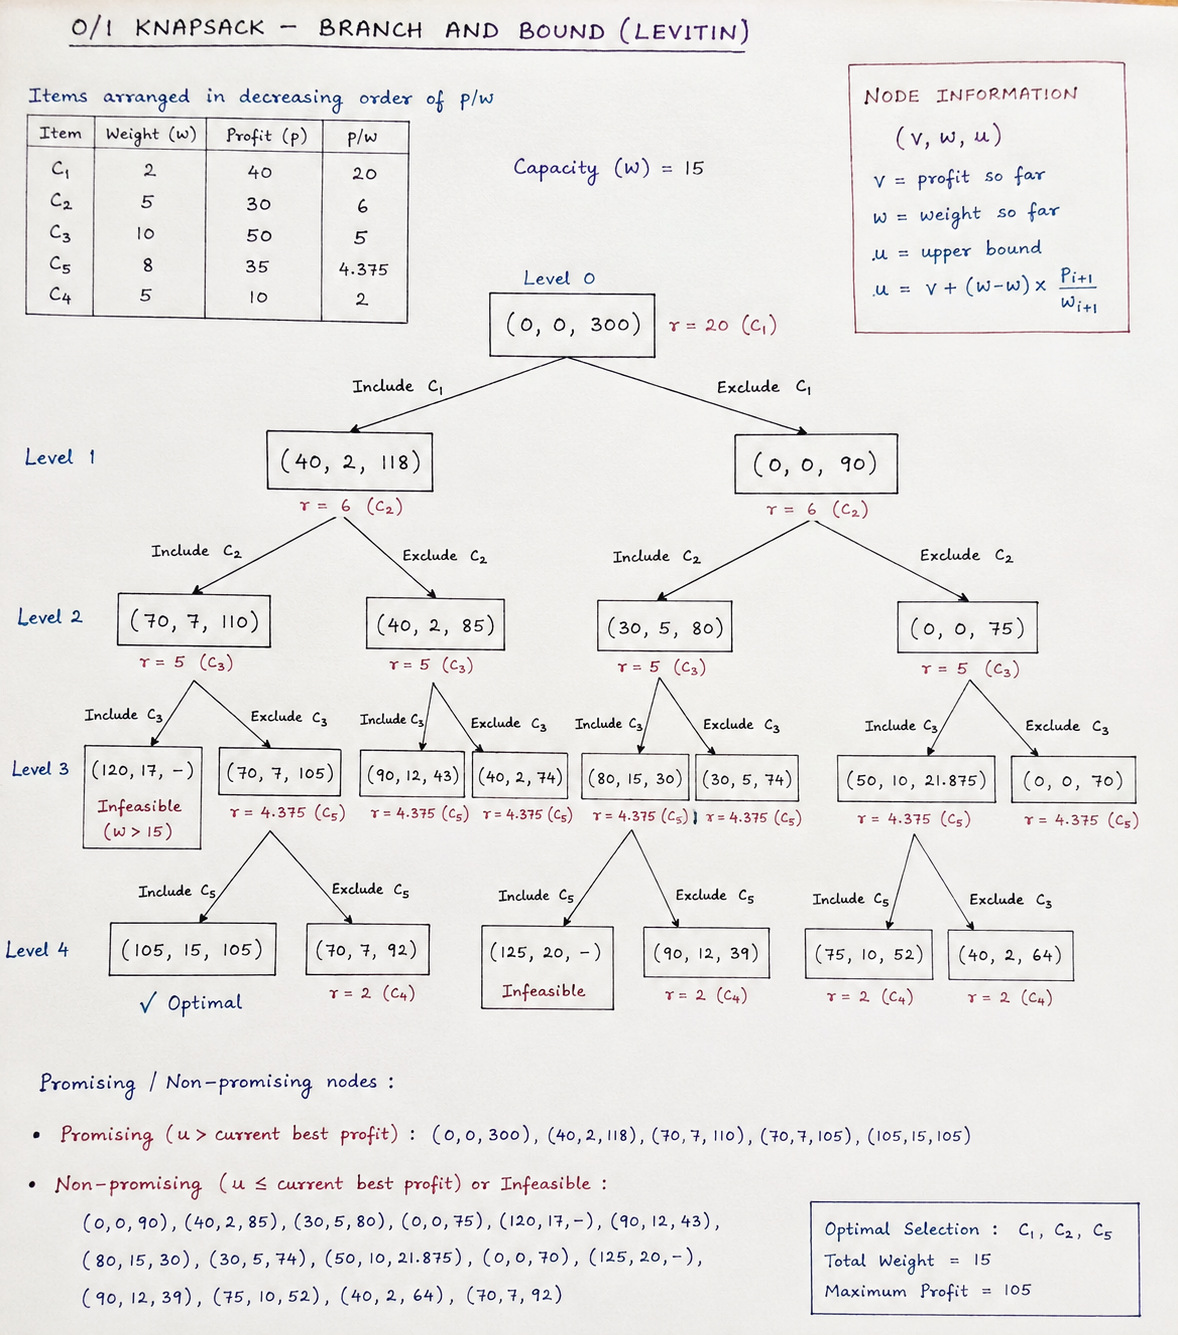 0/1 KNAPSACK – BRANCH AND BOUND (LEVITIN)
Items arranged in decreasing order of p/w
Item Weight (w) Profit (p) p/w
C₁ 2 40 20
C₂ 5 30 6
C₃ 10 50 5
C₅ 8 35 4.375
C₄ 5 10 2
Capacity (w) = 15
NODE INFORMATION
(v, w, u)
v = profit so far
w = weight so far
u = upper bound
u = v + (w-w) x Pᵢ₊₁ / wᵢ₊₁
Level 0
(0, 0, 300) r = 20 (C₁)
Include C₁ Exclude C₁
Level 1 (40, 2, 118) (0, 0, 90)
r = 6 (C₂) r = 6 (C₂)
Include C₂ Exclude C₂ Include C₂ Exclude C₂
Level 2 (70, 7, 110) (40, 2, 85) (30, 5, 80) (0, 0, 75)
r = 5 (C₃) r = 5 (C₃) r = 5 (C₃) r = 5 (C₃)
Include C₃ Exclude C₃ Include C₃ Exclude C₃ Include C₃ Exclude C₃ Include C₃ Exclude C₃
Level 3 (120, 17, -) (70, 7, 105) (90, 12, 43) (40, 2, 74) (80, 15, 30) (30, 5, 74) (50, 10, 21.875) (0, 0, 70)
Infeasible
(w > 15)
r = 4.375 (C₅) r = 4.375 (C₅) r = 4.375 (C₅) r = 4.375 (C₅) r = 4.375 (C₅) r = 4.375 (C₅) r = 4.375 (C₅)
Include C₅ Exclude C₅ Include C₅ Exclude C₅ Include C₅ Exclude C₃
Level 4 (105, 15, 105) (70, 7, 92) (125, 20, -) (90, 12, 39) (75, 10, 52) (40, 2, 64)
✓ Optimal r = 2 (C₄) Infeasible r = 2 (C₄) r = 2 (C₄) r = 2 (C₄)
Promising / Non-promising nodes :
• Promising (u > current best profit) : (0,0,300), (40,2,118), (70,7,110), (70,7,105), (105,15,105)
• Non-promising (u ≤ current best profit) or Infeasible :
(0,0,90), (40,2,85), (30,5,80), (0,0,75), (120,17,-), (90,12,43),
(80,15,30), (30,5,74), (50,10,21.875), (0,0,70), (125,20,-),
(90,12,39), (75,10,52), (40,2,64), (70,7,92)
Optimal Selection : C₁, C₂, C₅
Total Weight = 15
Maximum Profit = 105